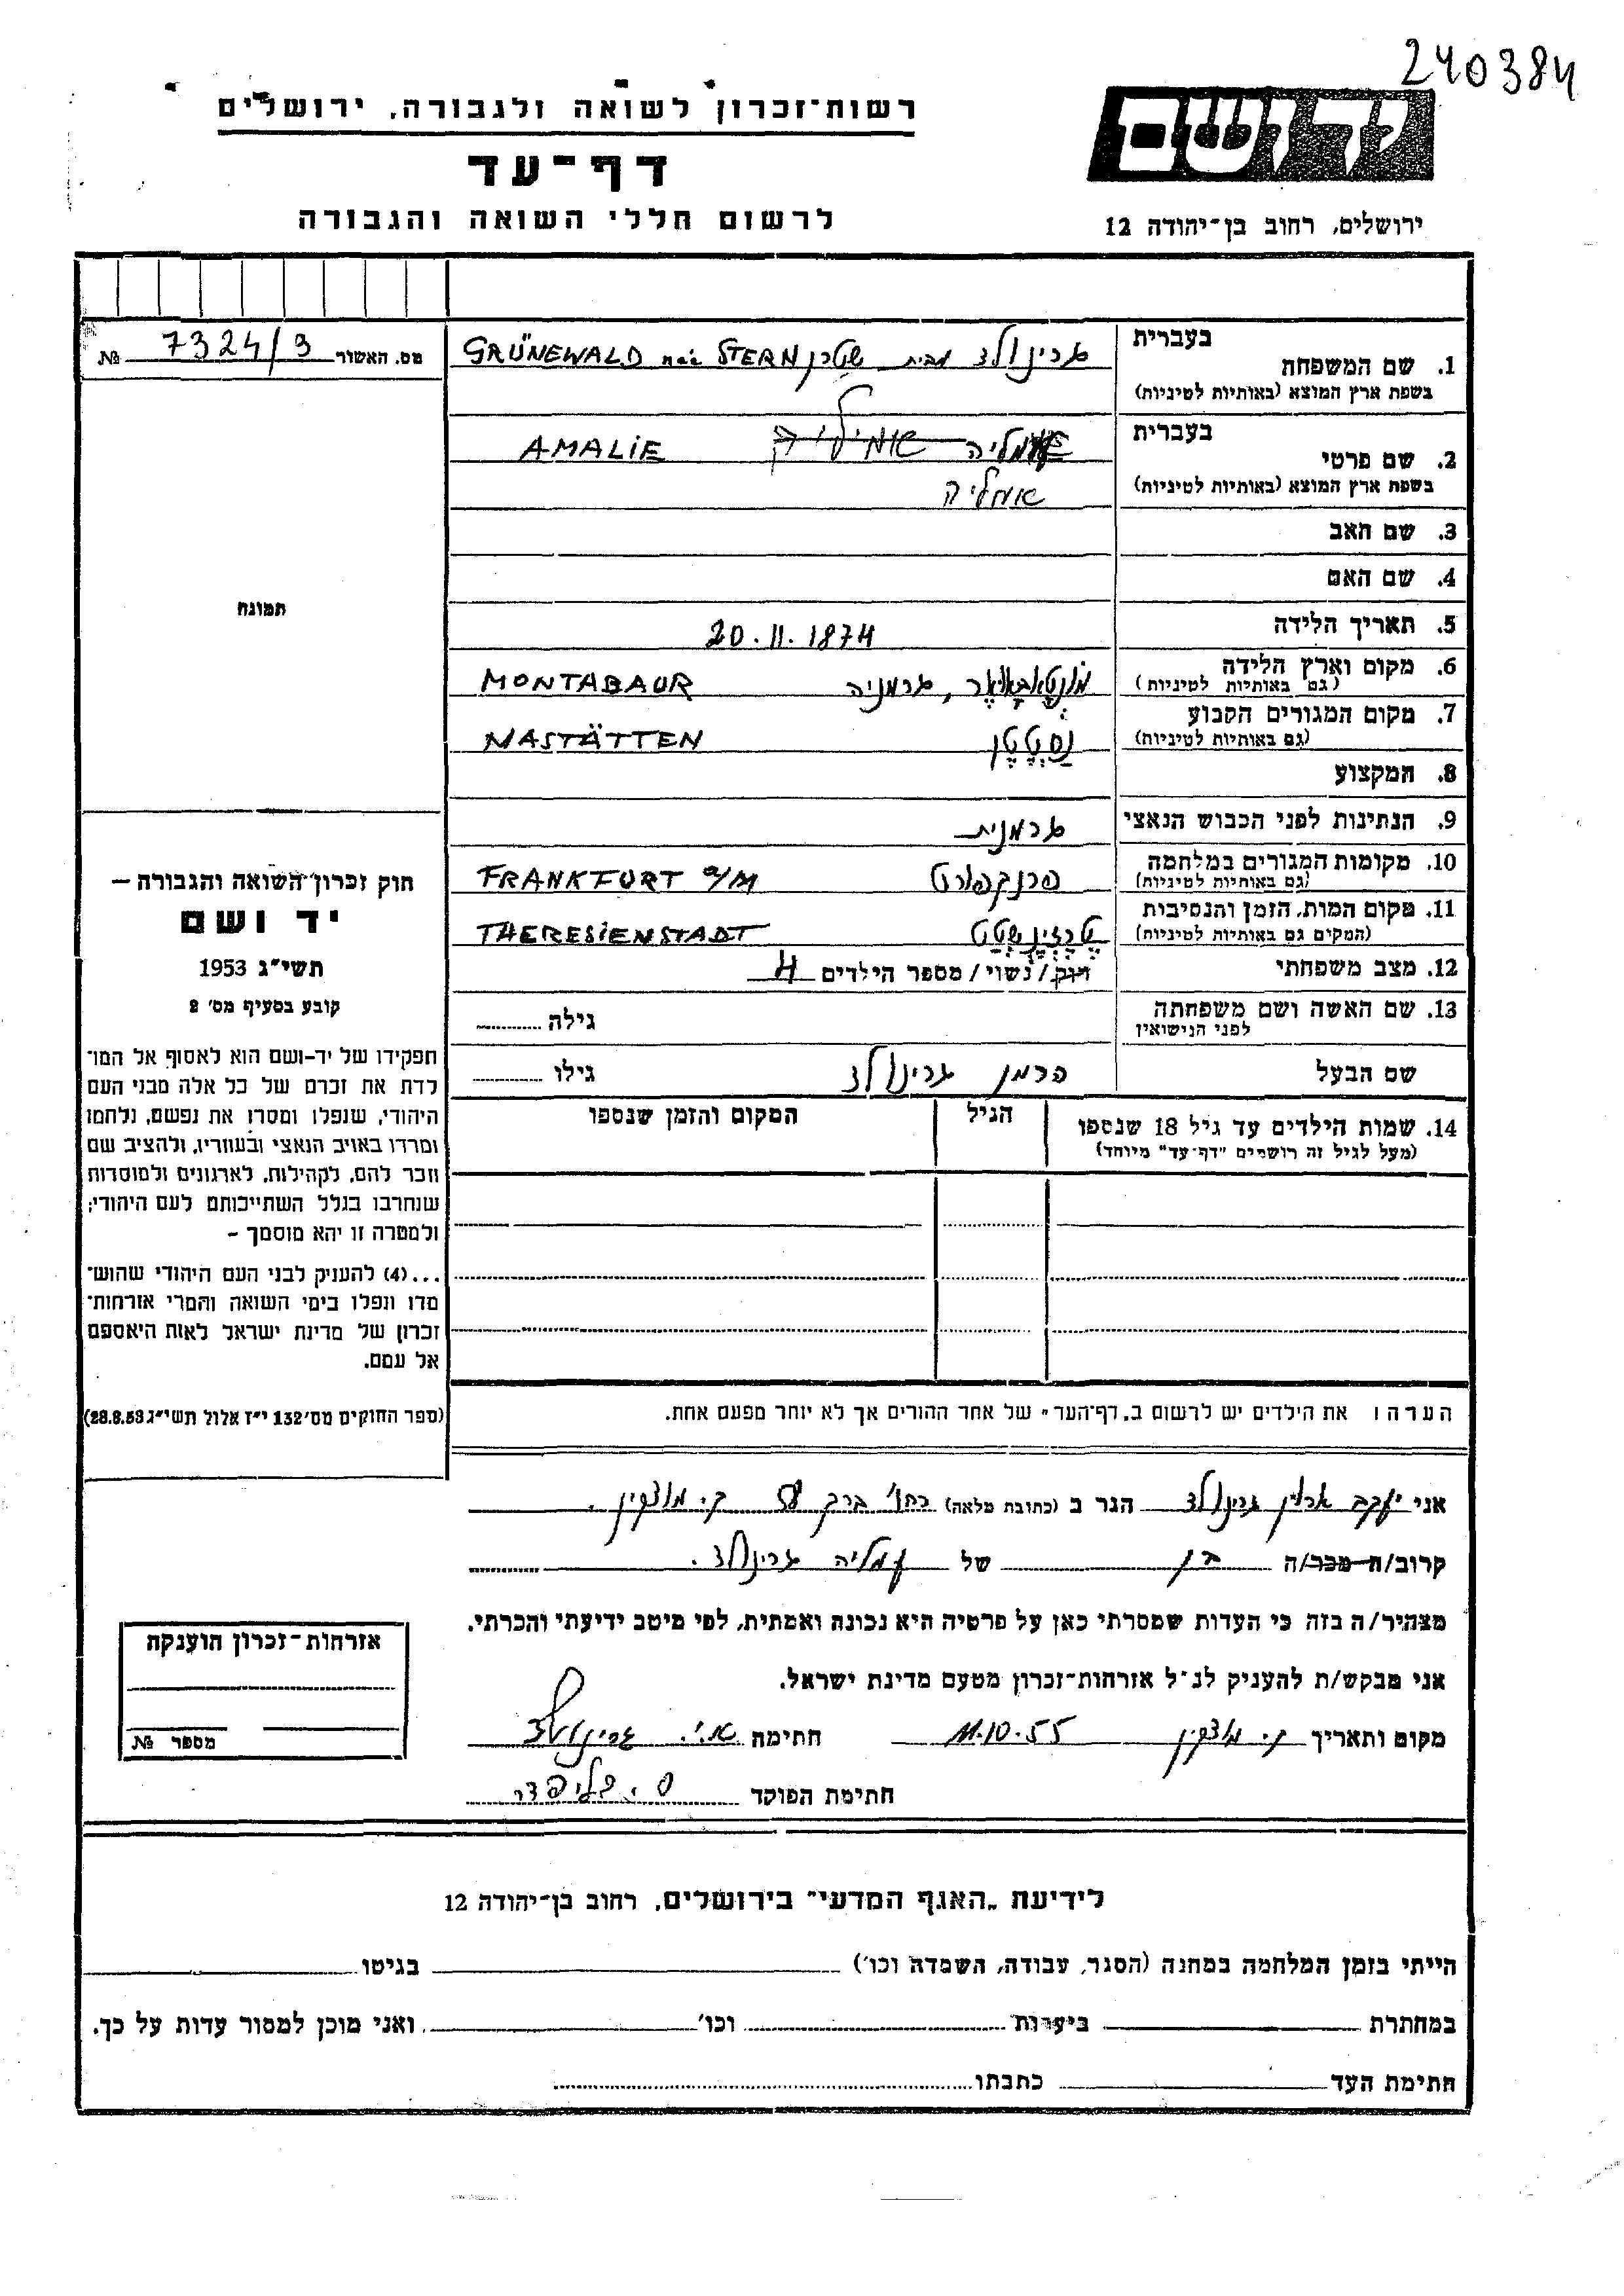 240384
יד ושם
ירושלים, רחוב בן־יהודה 12
רשות־זכרון לשואה ולגבורה, ירושלים
דף־עד
לרשום חללי השואה והגבורה
מס. האשור 7324/9 №
תמונה
בעברית
1. שם המשפחה
בשפת ארץ המוצא (באותיות לטיניות)
גרינולד מבית שטרן GRÜNEWALD née STERN
בעברית
2. שם פרטי
בשפת ארץ המוצא (באותיות לטיניות)
אמליה AMALIE
אמליה
3. שם האב
4. שם האם
5. תאריך הלידה 20.11.1874
6. מקום וארץ הלידה
(גם באותיות לטיניות)
גרמניה MONTABAUR
7. מקום המגורים הקבוע
(גם באותיות לטיניות)
נַסְטֶטֶן NASTÄTTEN
8. המקצוע
9. הנתינות לפני הכבוש הנאצי גרמנית
10. מקומות המגורים במלחמה
(גם באותיות לטיניות)
פרנקפורט FRANKFURT a/M
11. מקום המות, הזמן והנסיבות
(המקום גם באותיות לטיניות)
טֶרֶזִיֶנְשְטַט THERESIENSTADT
12. מצב משפחתי רווק/נשוי/מספר הילדים 4
13. שם האשה ושם משפחתה
לפני הנישואין
גילה
שם הבעל הרמן גרינולד גילו
14. שמות הילדים עד גיל 18 שנספו
(מעל לגיל זה רושמים "דף־עד" מיוחד)
הגיל
המקום והזמן שנספו
חוק זכרון־השואה והגבורה –
יד ושם
תשי"ג 1953
קובע בסעיף מס' 2
תפקידו של יד-ושם הוא לאסוף אל המו־
לדת את זכרם של כל אלה מבני העם
היהודי, שנפלו ומסרו את נפשם, נלחמו
ומרדו באויב הנאצי ובעוזריו, ולהציב שם
וזכר להם, לקהילות, לארגונים ולמוסדות
שנחרבו בגלל השתייכותם לעם היהודי;
ולמטרה זו יהא מוסמך –
...(4) להעניק לבני העם היהודי שהוש־
מדו ונפלו בימי השואה והמרי אזרחות־
זכרון של מדינת ישראל לאות היאספם
אל עמם.
(ספר החוקים מס' 132 י"ז אלול תשי"ג 28.8.53)
הערה: את הילדים יש לרשום ב„דף־העד" של אחד ההורים אך לא יותר מפעם אחת.
אני יעקב ארווין גרינולד הגר ב (כתובת מלאה) רחו' ברק 58 ק. מוצקין.
קרוב/ה מכר/ה בן של עמליה גרינולד.
מצהיר/ה בזה כי העדות שמסרתי כאן על פרטיה היא נכונה ואמתית, לפי מיטב ידיעתי והכרתי.
אני מבקש/ת להעניק לנ"ל אזרחות־זכרון מטעם מדינת ישראל.
מקום ותאריך ק. מוצקין 11.10.55 חתימה א.י. גרינולד
חתימת הפוקד
אזרחות־זכרון הוענקה
מספר №
לידיעת „האגף המדעי" בירושלים, רחוב בן־יהודה 12
הייתי בזמן המלחמה במחנה (הסגר, עבודה, השמדה וכו') בגיטו
במחתרת ביערות וכו' ואני מוכן למסור עדות על כך.
חתימת העד כתבתו